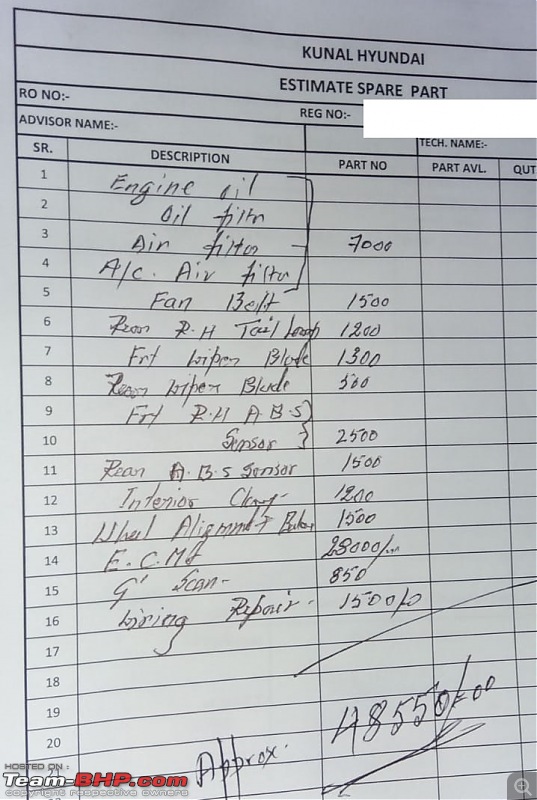 KUNAL HYUNDAI
ESTIMATE SPARE PART
RO NO:-
REG NO:-
ADVISOR NAME:-
TECH. NAME:-
SR. DESCRIPTION PART NO PART AVL. QUT
1 Engine oil
2 Oil filtr
3 Air filtor 7000
4 A/c. Air filtor
5 Fan Belt 1500
6 Rear R.H Tail Lamp 1200
7 Frt wiper Blade 1300
8 Rear wiper Blade 500
9 Frt R.H A.B.S
10 Sensor 2500
11 Rear A.B.S Sensor 1500
12 Interior 1200
13 Wheel Alignment 1500
14 E.C.M
15 G' Scan- 850
16 Wiring Repair- 1500/0
17
18
19
20
Approx. 48550/=00
HOSTED ON :
Team-BHP.com
copyright respective owners